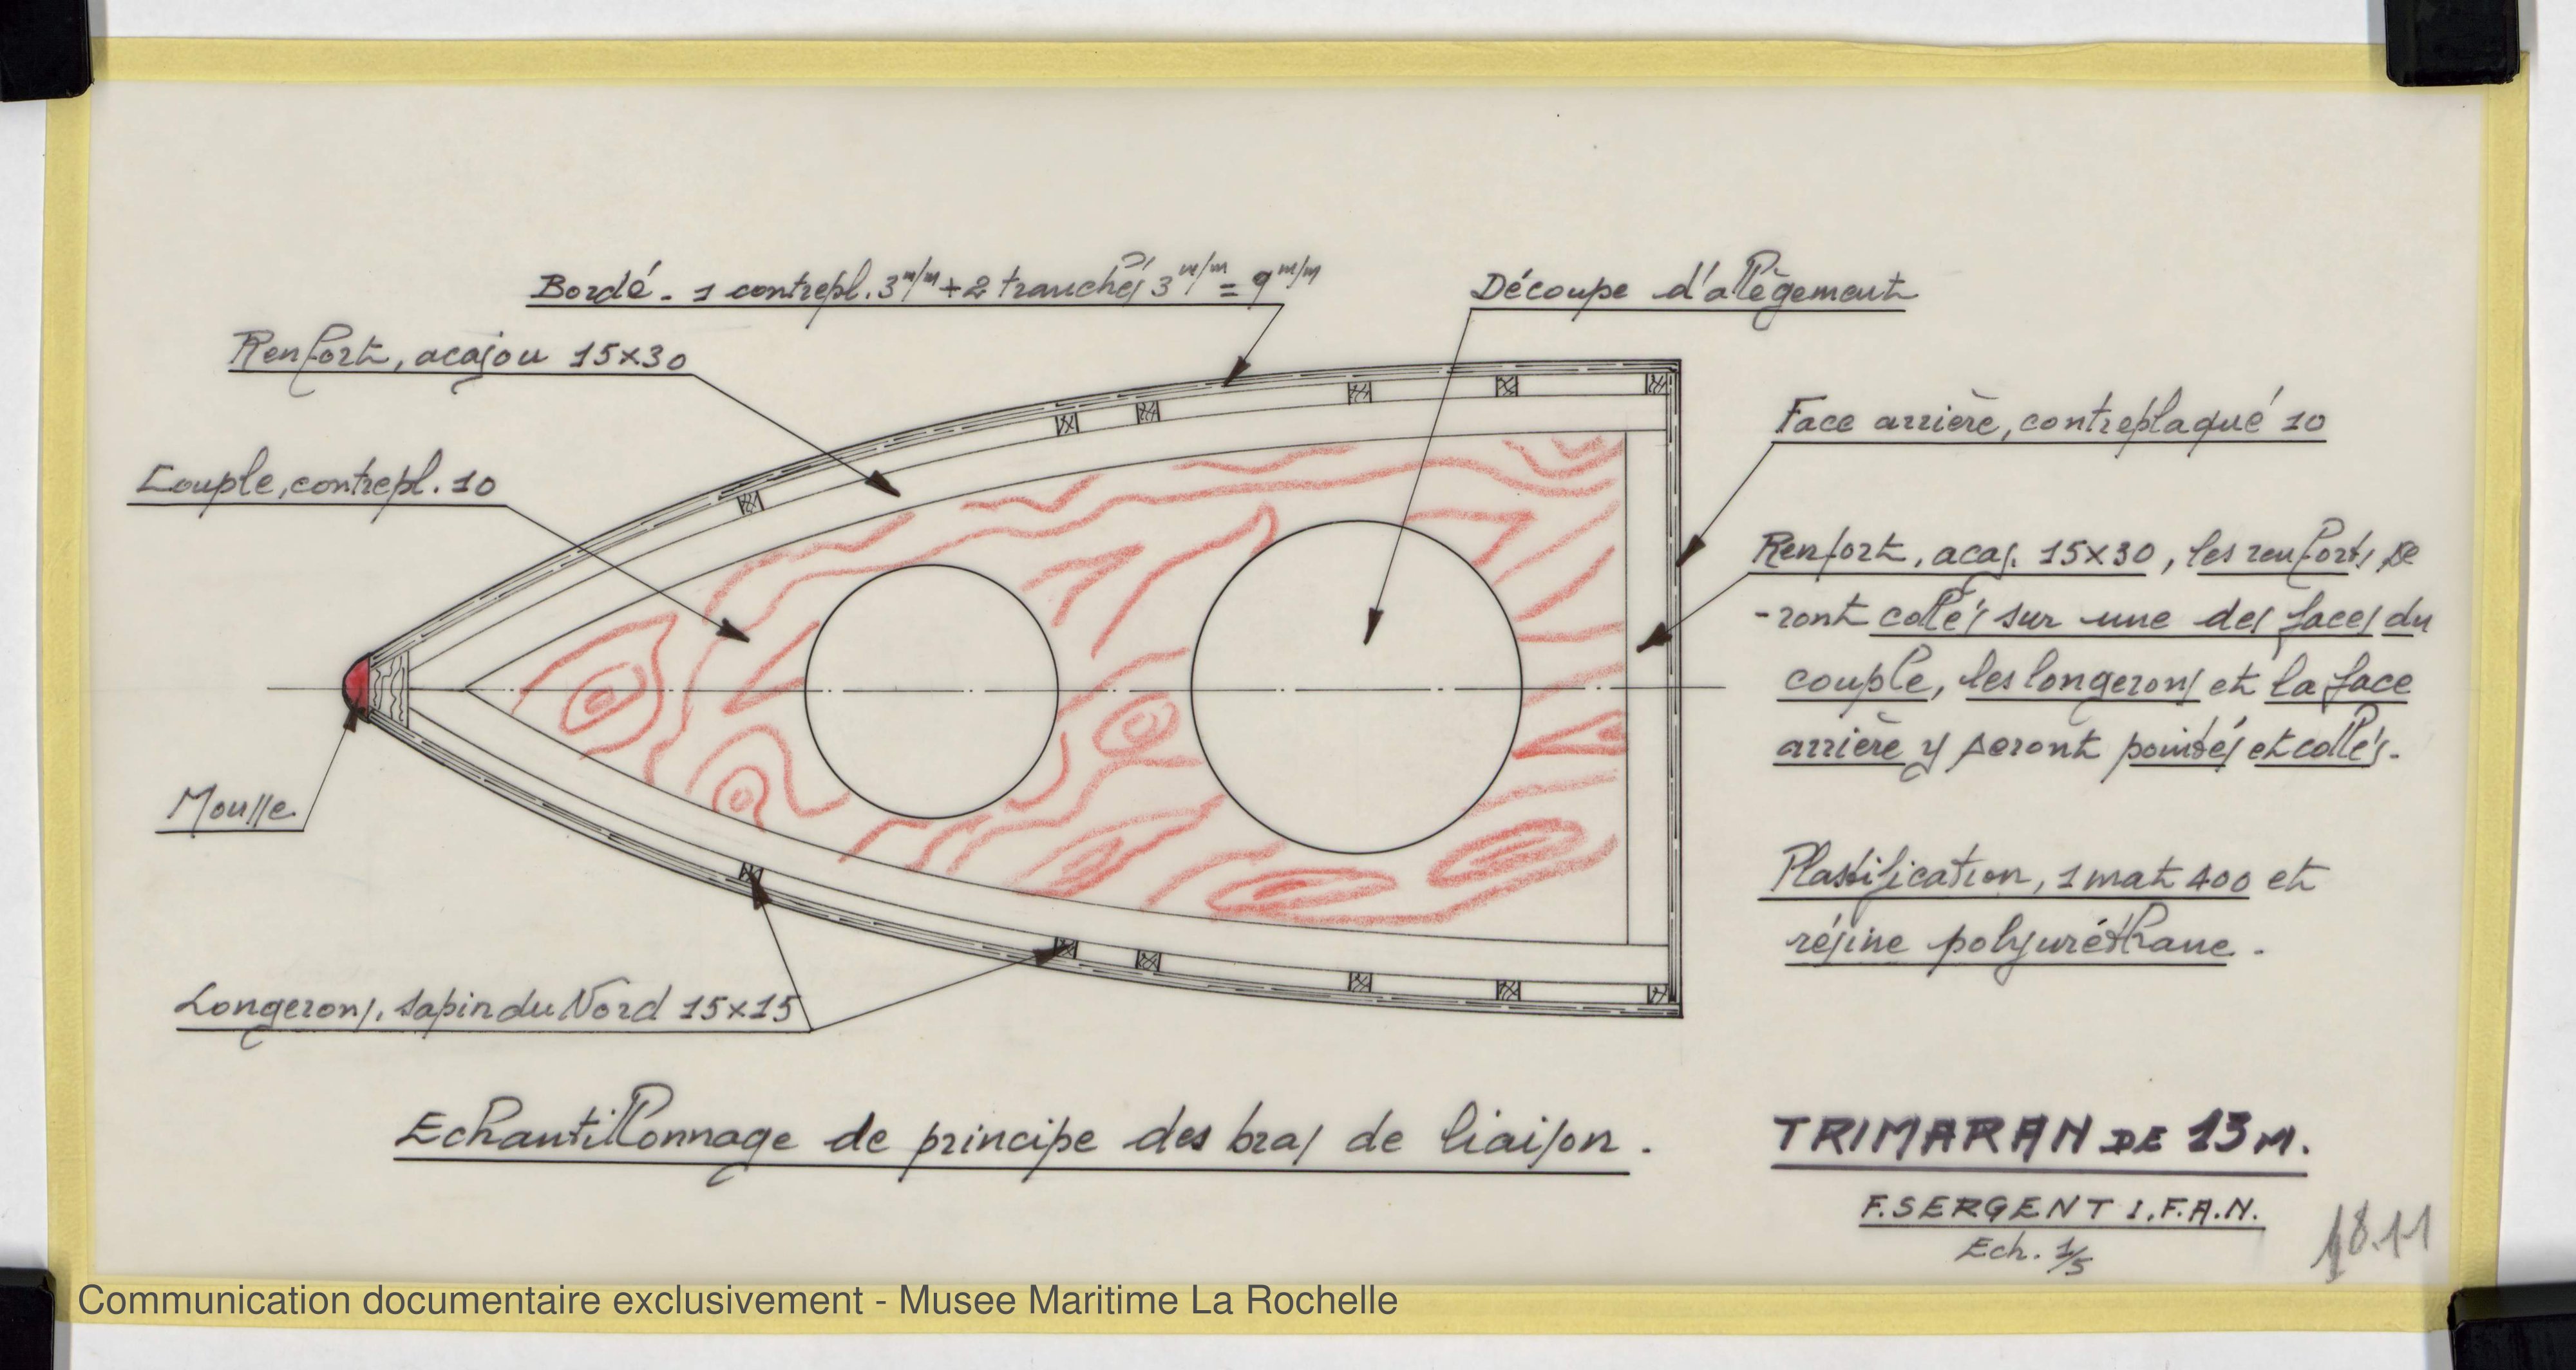 Bordé - 1 contrepl. 3 m/m + 2 tranchés 3 m/m = 9 m/m
Découpe d'allègement
Renfort, acajou 15x30
Face arrière, contreplaqué 10
Couple, contrepl. 10
Renfort, acaj. 15x30, les renforts se
-ront collés sur une des faces du
couple, les longerons et la face
arrière y seront pointés et collés.
Mousse
Plastification, 1 mat 400 et
résine polyuréthane.
Longerons, sapin du Nord 15x15
Echantillonnage de principe des bras de liaison.
TRIMARAN DE 13 M.
F. SERGENT I.F.A.N.
Ech. 1/5
18.11
Communication documentaire exclusivement - Musee Maritime La Rochelle